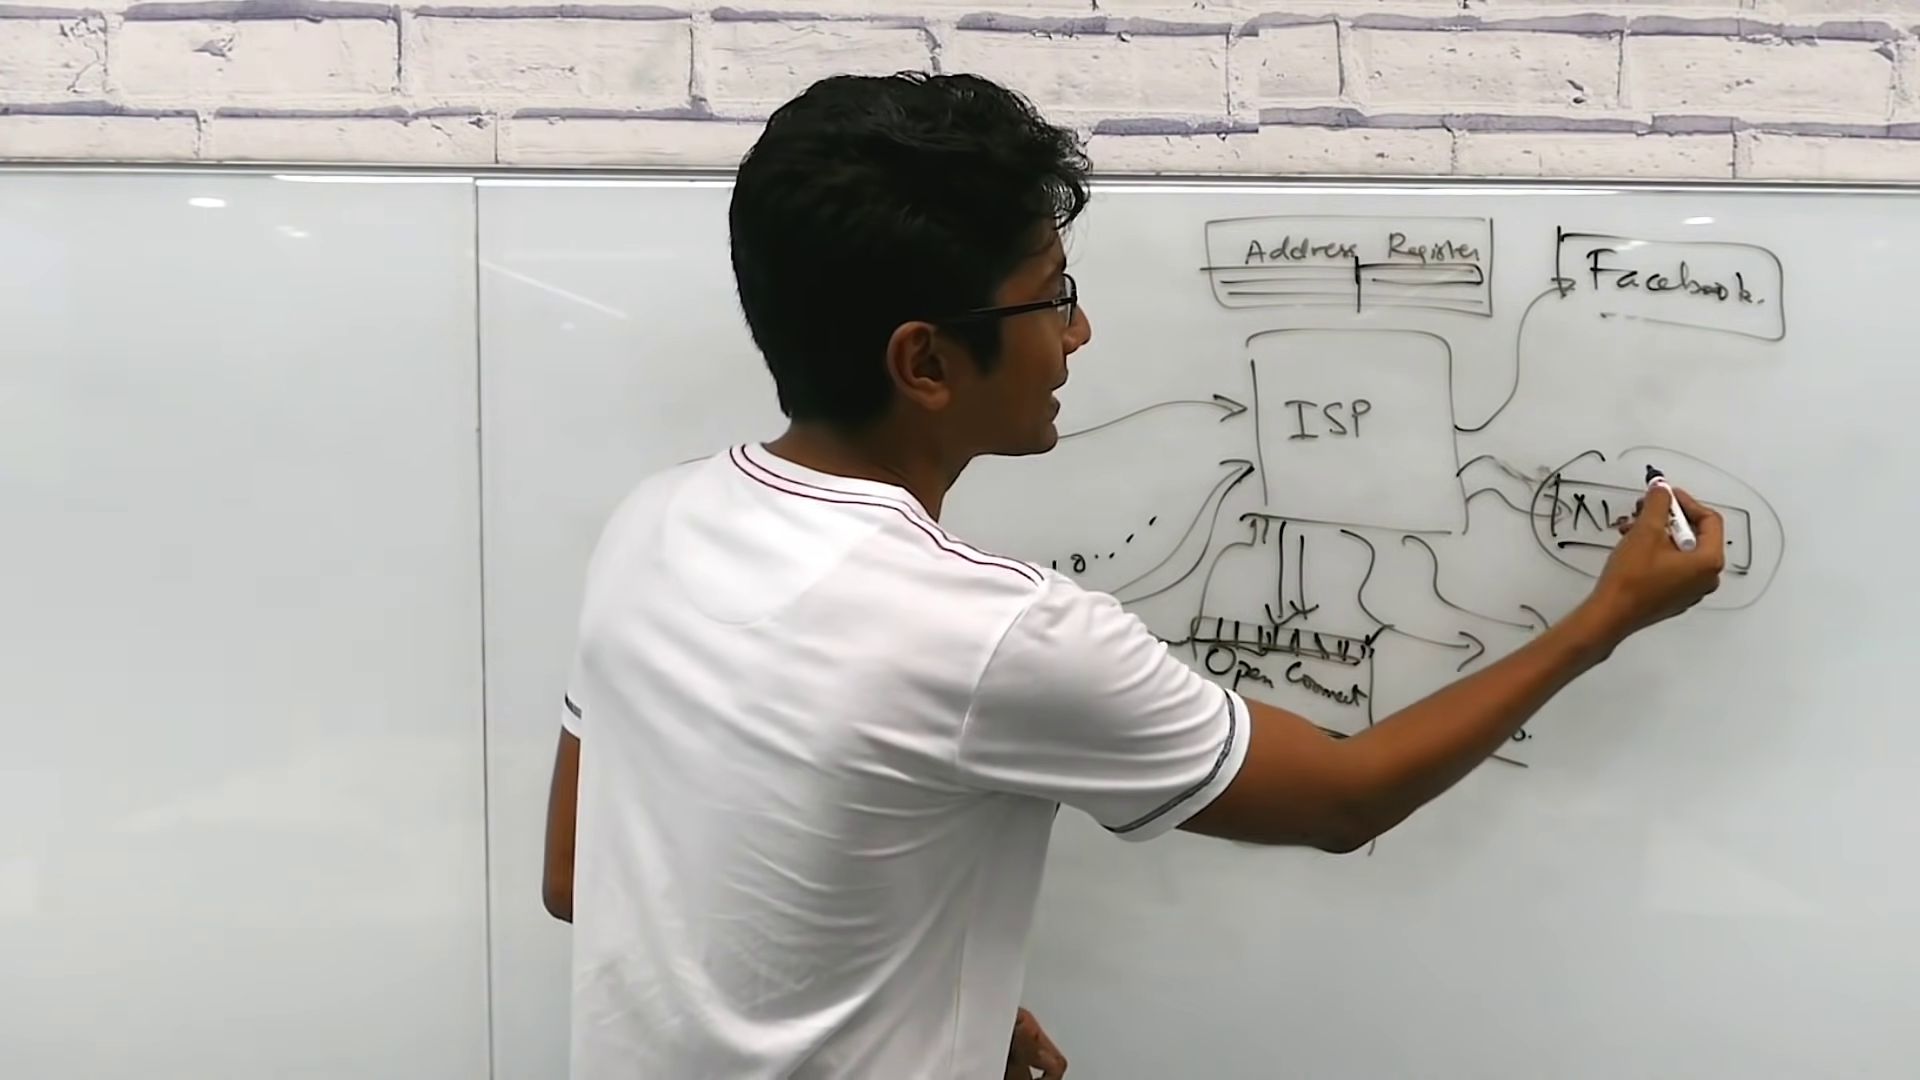 Address Register
Facebook.
ISP
Open Connect